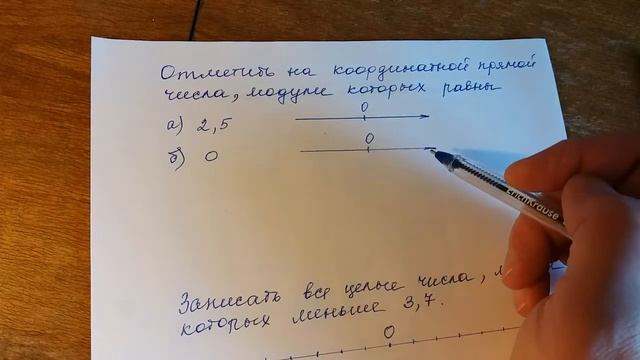 Отметить на координатной прямой
числа, модули которых равны
а) 2,5
0
б) 0
0
erichKrause
Записать все целые числа,
которых меньше 3,7.
0